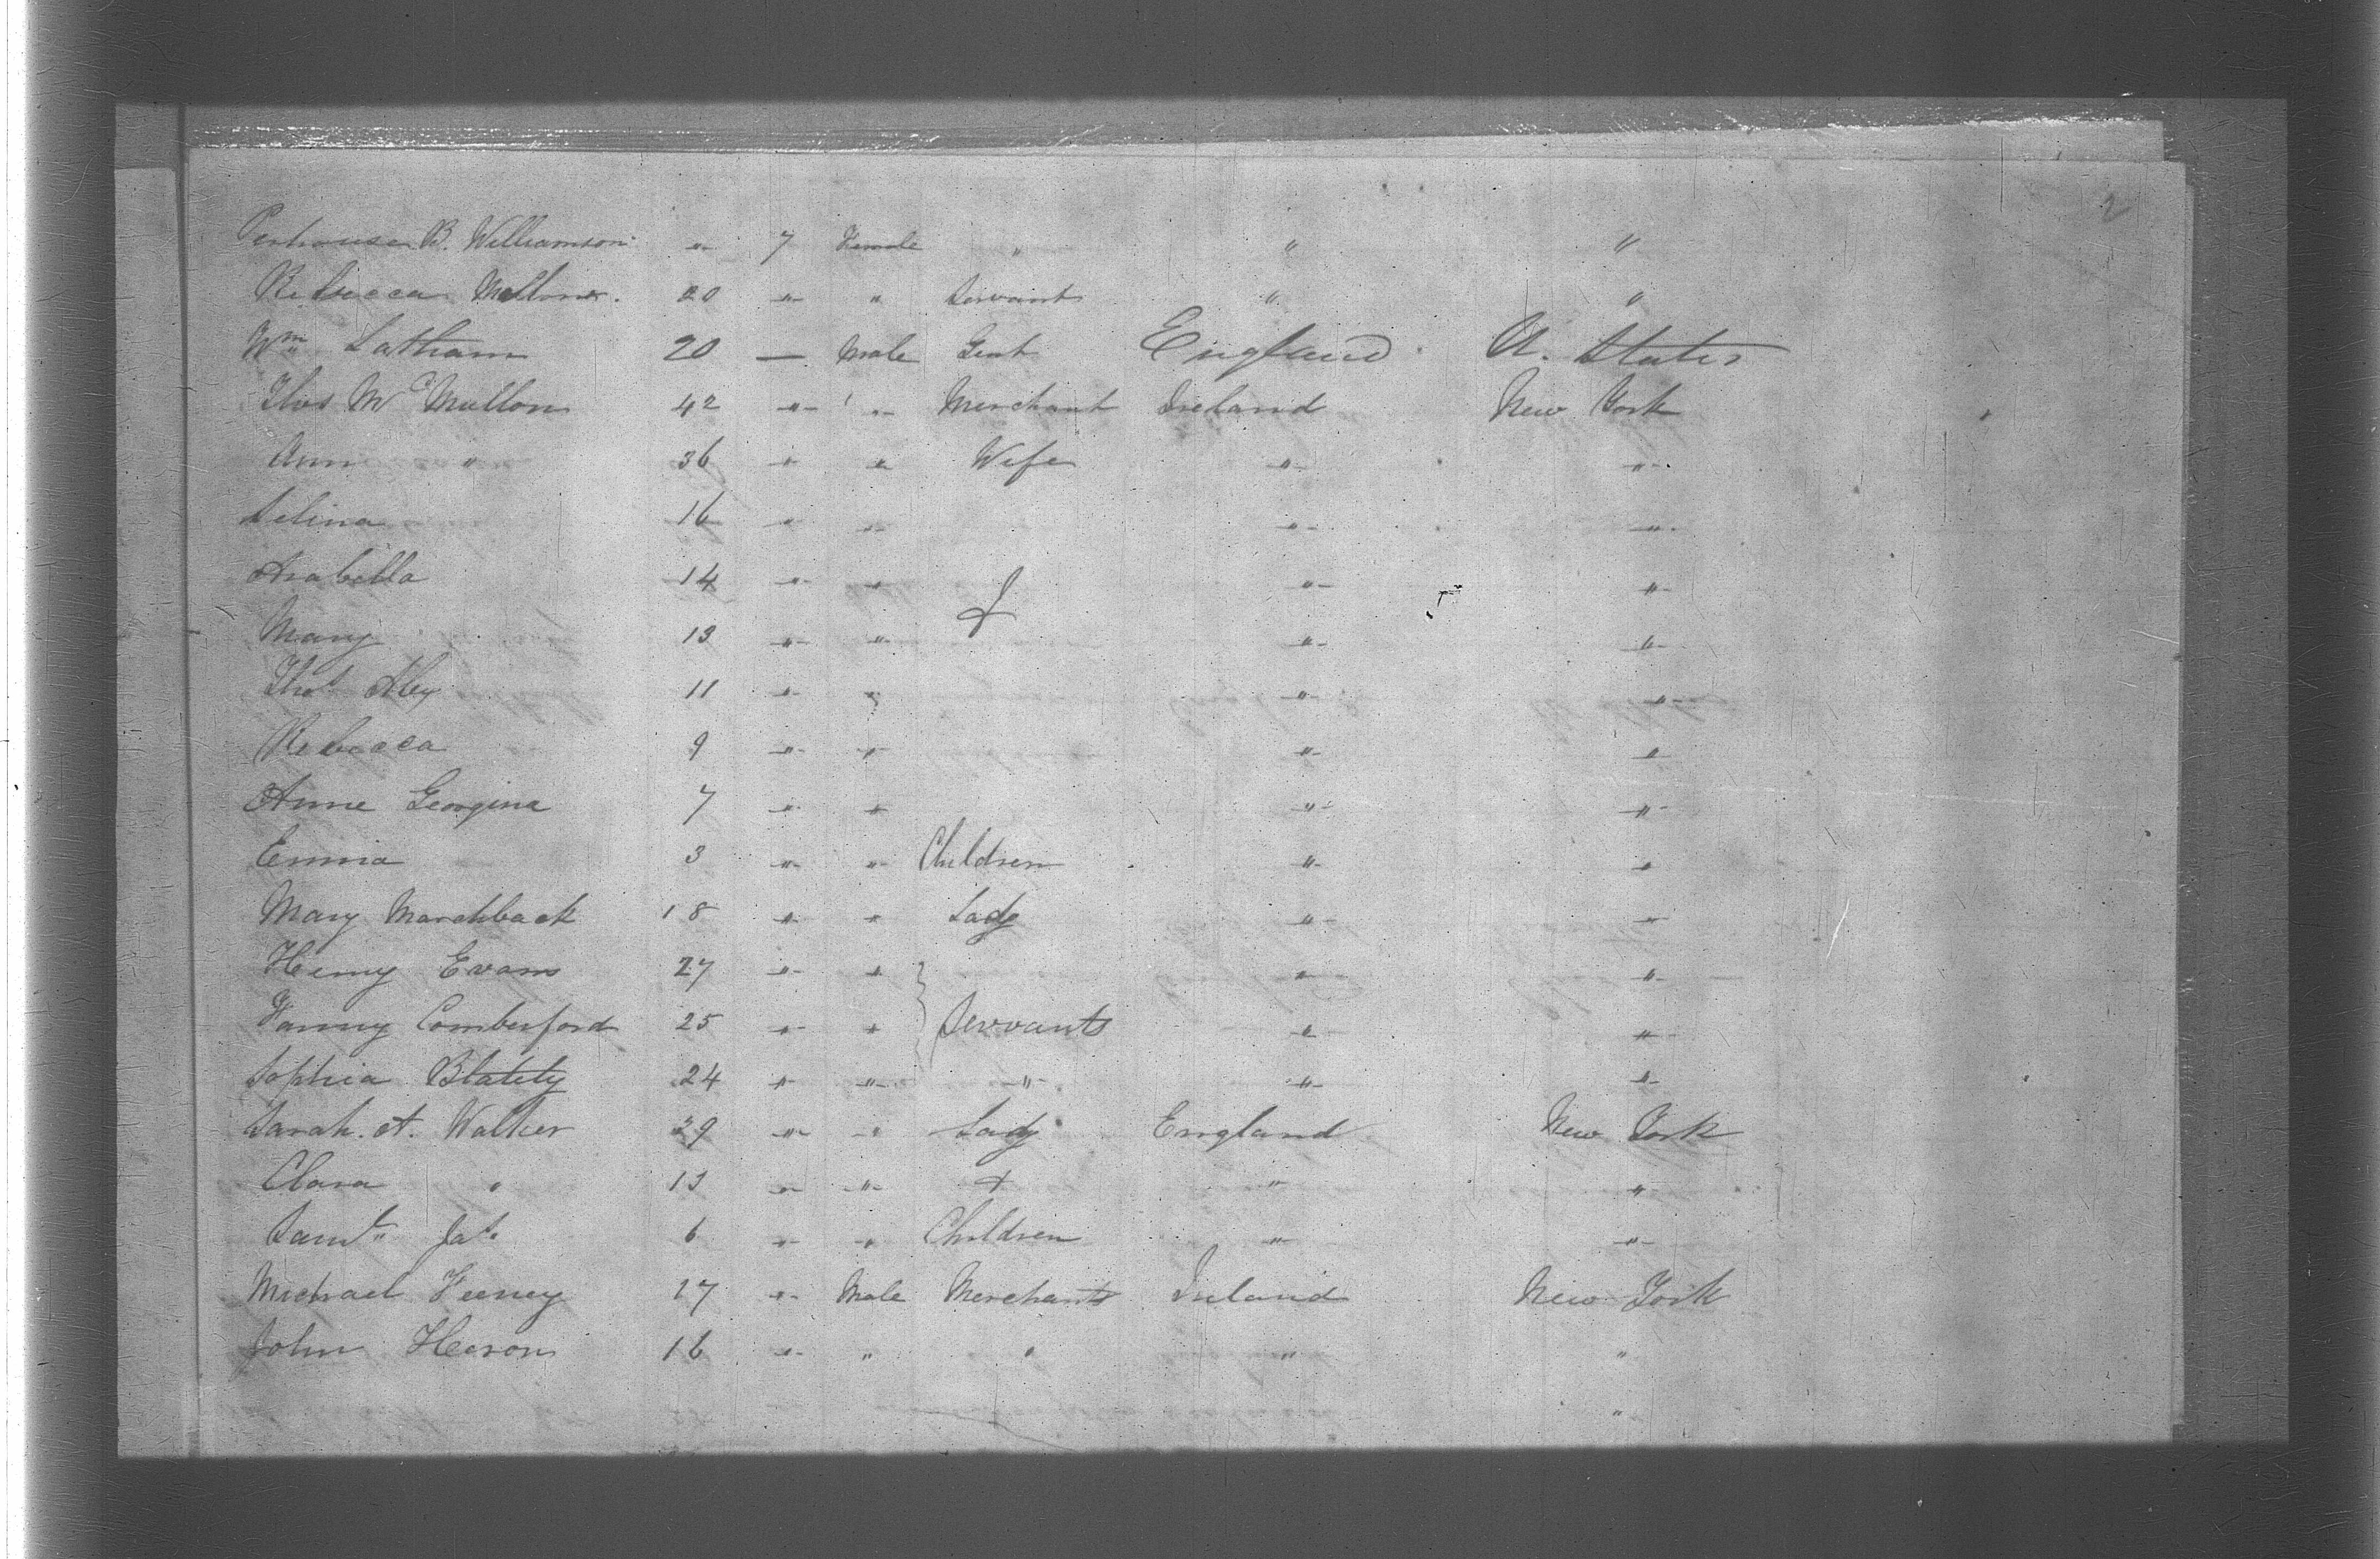 2
B. Williamson " 7 Female " " "
Rebecca 20 " " Servant " "
Wm Latham 20 — Male Gent England U. States
Thos McMullon 42 " " Merchant Ireland New York
Ann " 36 " " Wife " "
Selina 16 " " " "
Arabella 14 " " " "
Mary 13 " " " "
Thos Alex 11 " " " "
Rebecca 9 " " " "
Anne Georgina 7 " " " "
Emma 3 " " Children " "
Mary Marchback 18 " " Lady " "
Henry Evans 27 " " " "
Fanny Comberford 25 " " Servants " "
Sophia 24 " " " " "
Sarah. A. Walker 29 " " Lady England New York
Clara " 13 " " + " "
Saml Jas 6 " " Children " "
Michael Feeney 17 " Male Merchants Ireland New York
John Heron 16 " " " " "
"